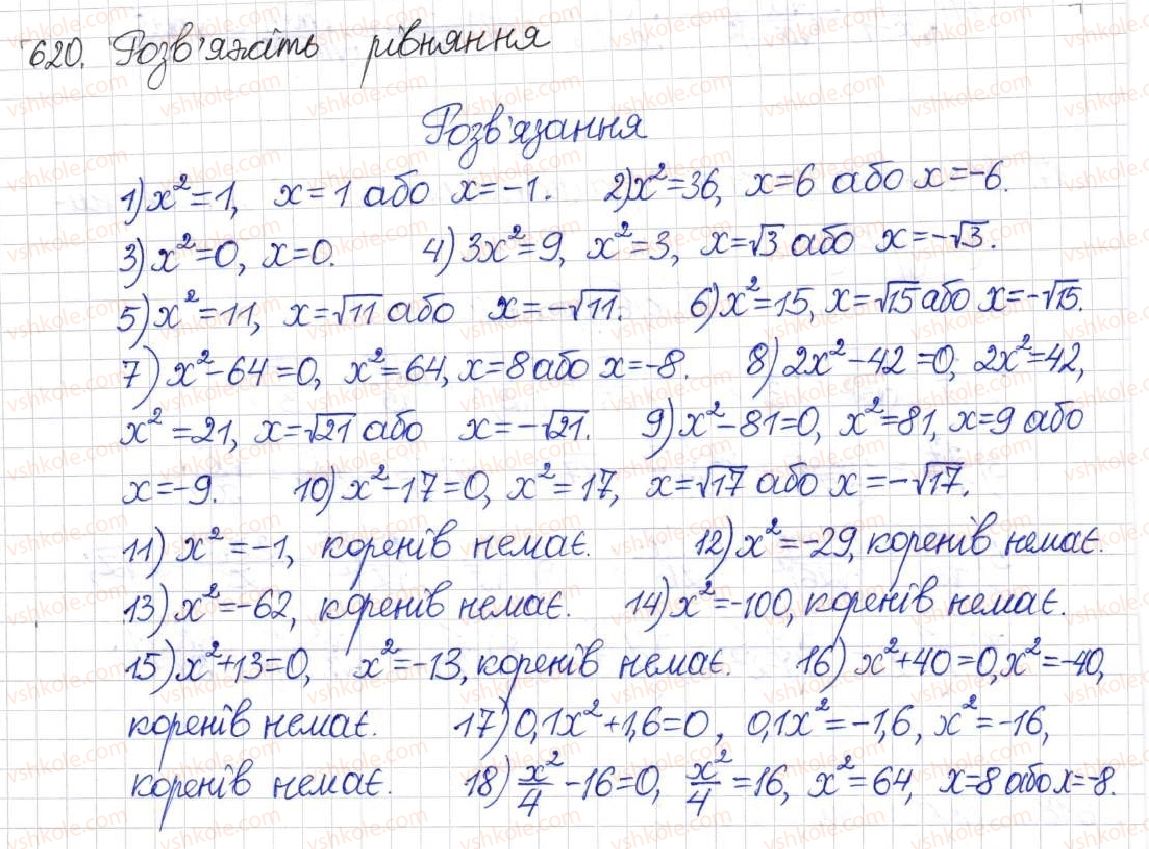 620. Розв'яжіть рівняння
Розв'язання
1) x²=1, x=1 або x=-1. 2) x²=36, x=6 або x=-6.
3) x²=0, x=0. 4) 3x²=9, x²=3, x=√3 або x=-√3.
5) x²=11, x=√11 або x=-√11. 6) x²=15, x=√15 або x=-√15.
7) x²-64=0, x²=64, x=8 або x=-8. 8) 2x²-42=0, 2x²=42,
x²=21, x=√21 або x=-√21. 9) x²-81=0, x²=81, x=9 або
x=-9. 10) x²-17=0, x²=17, x=√17 або x=-√17.
11) x²=-1, коренів немає. 12) x²=-29, коренів немає.
13) x²=-62, коренів немає. 14) x²=-100, коренів немає.
15) x²+13=0, x²=-13, коренів немає. 16) x²+40=0, x²=-40,
коренів немає. 17) 0,1x²+1,6=0, 0,1x²=-1,6, x²=-16,
коренів немає. 18) x²/4-16=0, x²/4=16, x²=64, x=8 або x=-8.